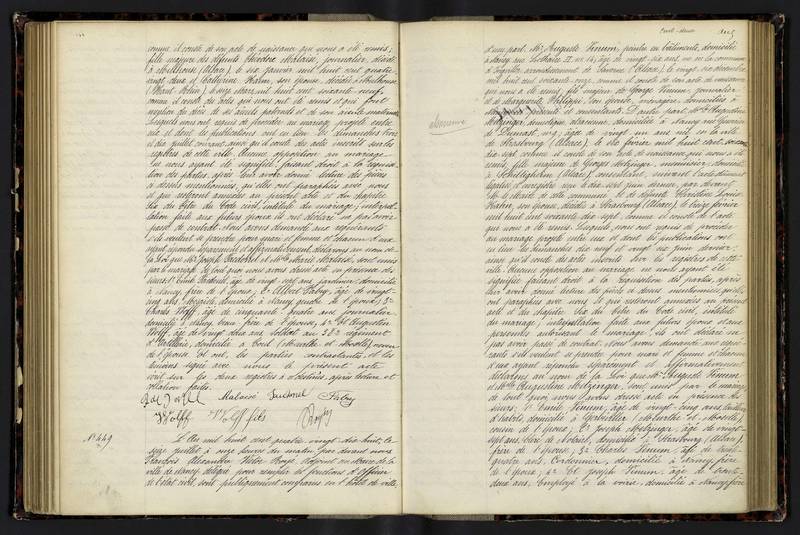 comme il conste de son acte de naissance qui nous a été remis;
fille majeure des défunts Théodore Malaisé, journalier, décédé
à Mulhouse (Alsace), le six janvier mil huit cent quatre-
vingt deux et Catherine Harm, son épouse, décédée à Mulhouse
(Haut-Rhin) le onze mars mil huit cent soixante neuf,
comme il conste des actes qui nous ont été remis et qui font
mention du décès de ses aïeuls paternels et de son aïeule maternelle
Lesquels nous ont requis de procéder au mariage projeté entre
eux et dont les publications ont eu lieu les dimanches trois
et dix juillet courant, ainsi qu'il conste des actes inscrits sur les
registres de cette ville. Aucune opposition au mariage
ne nous ayant été signifiée, faisant droit à la réquisition
des parties, après leur avoir donné lecture des pièces
ci-dessus mentionnées, qu'elles ont paraphées avec nous
et qui resteront annexées au présent acte et du chapitre
Six du titre du Code civil, intitulé du mariage; interpel-
lation faite aux futurs époux ils ont déclaré ne pas avoir
passé de contrat. Nous avons demandé aux requérants
s'ils veulent se prendre pour mari et femme et chacun d'eux
ayant répondu séparément et affirmativement, déclarons au nom de
la Loi que Mr Joseph et Mlle Marie Malaisé, sont unis
par le mariage. De tout quoi nous avons dressé acte en présence des
sieurs: 1° Emile, âgé de vingt sept ans, jardinier, domicilié
à Nancy, frère de l'époux; 2° Albert Fabry, âgé de vingt-
cinq ans, domicilié à Nancy, de l'époux; 3°
Charles Wolff, âgé de cinquante quatre ans, journalier,
domicilié à Nancy, beau-frère de l'épouse; 4° et Augustin
Wolff, âgé de vingt deux ans, soldat au 39e régiment
d'artillerie, domicilié à Toul (Meurthe et Moselle), neveu
de l'épouse et ont, les parties contractantes et les
témoins signé avec nous le présent acte
écrit sur les deux registres à ce destinés, après lecture et
collation faites.
Malaisé Fabry
Wolff Wolff fils
N° 449
L'An mil huit cent quatre-vingt-dix-huit, le
seize juillet à onze heures du matin, par devant nous
François Alexandre Victor, adjoint au Maire de la
ville de Nancy, délégué pour remplir les fonctions d'officier
de l'état civil, sont publiquement comparus en l'hôtel de ville,
d'une part, Mr Auguste Simon, peintre en bâtiments, domicilié
à Nancy, âgé de vingt six ans, né en la commune
arrondissement de Saverne (Alsace), le vingt six décembre
mil huit cent soixante-onze, comme il conste de son acte de naissance
qui nous a été remis, fils majeur de George Simon, journalier
et de Marguerite Philippi, son épouse, ménagère, domiciliés à
présents et consentants. D'autre part, Mlle Augustine
Metzinger, domestique, domiciliée à Nancy rue Guerrier
de Dumast, âgée de vingt un ans, née en la ville
de Strasbourg (Alsace), le dix février mil huit cent soixante
dix-sept comme il conste de son acte de naissance qui nous a été
remis, fille majeure de George Metzinger, menuisier, domicilié
à Schiltigheim (Alsace), consentant, suivant l'acte dûment
légalisé et enregistré reçu le dix sept juin dernier, par devant
M. le Maire de dite commune, et de défunte Christine Louise
son épouse, décédée à Strasbourg (Alsace), le douze février
mil huit cent quatre-vingt dix sept, comme il conste de l'acte
qui nous a été remis. Lesquels nous ont requis de procéder
au mariage projeté entre eux et dont les publications ont
eu lieu les dimanches dix neuf et vingt six juin dernier,
ainsi qu'il conste des actes inscrits sur les registres de cette
ville. Aucune opposition au mariage ne nous ayant été
signifiée, faisant droit à la réquisition des parties, après
leur avoir donné lecture des pièces ci-dessus mentionnées, qu'ils
ont paraphées avec nous et qui resteront annexées au présent
acte et du chapitre six du titre du Code civil, intitulé
du mariage; interpellation faite aux futurs époux et aux
personnes autorisant le mariage, ils ont déclaré ne
pas avoir passé de contrat. Nous avons demandé aux requé-
rants s'ils veulent se prendre pour mari et femme et chacun
d'eux ayant répondu séparément et affirmativement
déclarons au nom de la Loi que Mr Auguste Simon
et Mlle Augustine Metzinger, sont unis par le mariage.
De tout quoi nous avons dressé acte en présence des
sieurs: 1° Emile Simon, âgé de vingt cinq ans, tailleur
d'habits, domicilié à (Meurthe et Moselle),
cousin de l'époux; 2° Joseph Metzinger, âgé de vingt-
sept ans, clerc de notaire, domicilié à Strasbourg (Alsace),
frère de l'épouse; 3° Charles Simon, âgé de vingt-
quatre ans, cordonnier, domicilié à Nancy, frère
de l'époux; 4° et Joseph Simon, âgé de trente
deux ans, employé à la voirie, domicilié à Nancy, frère